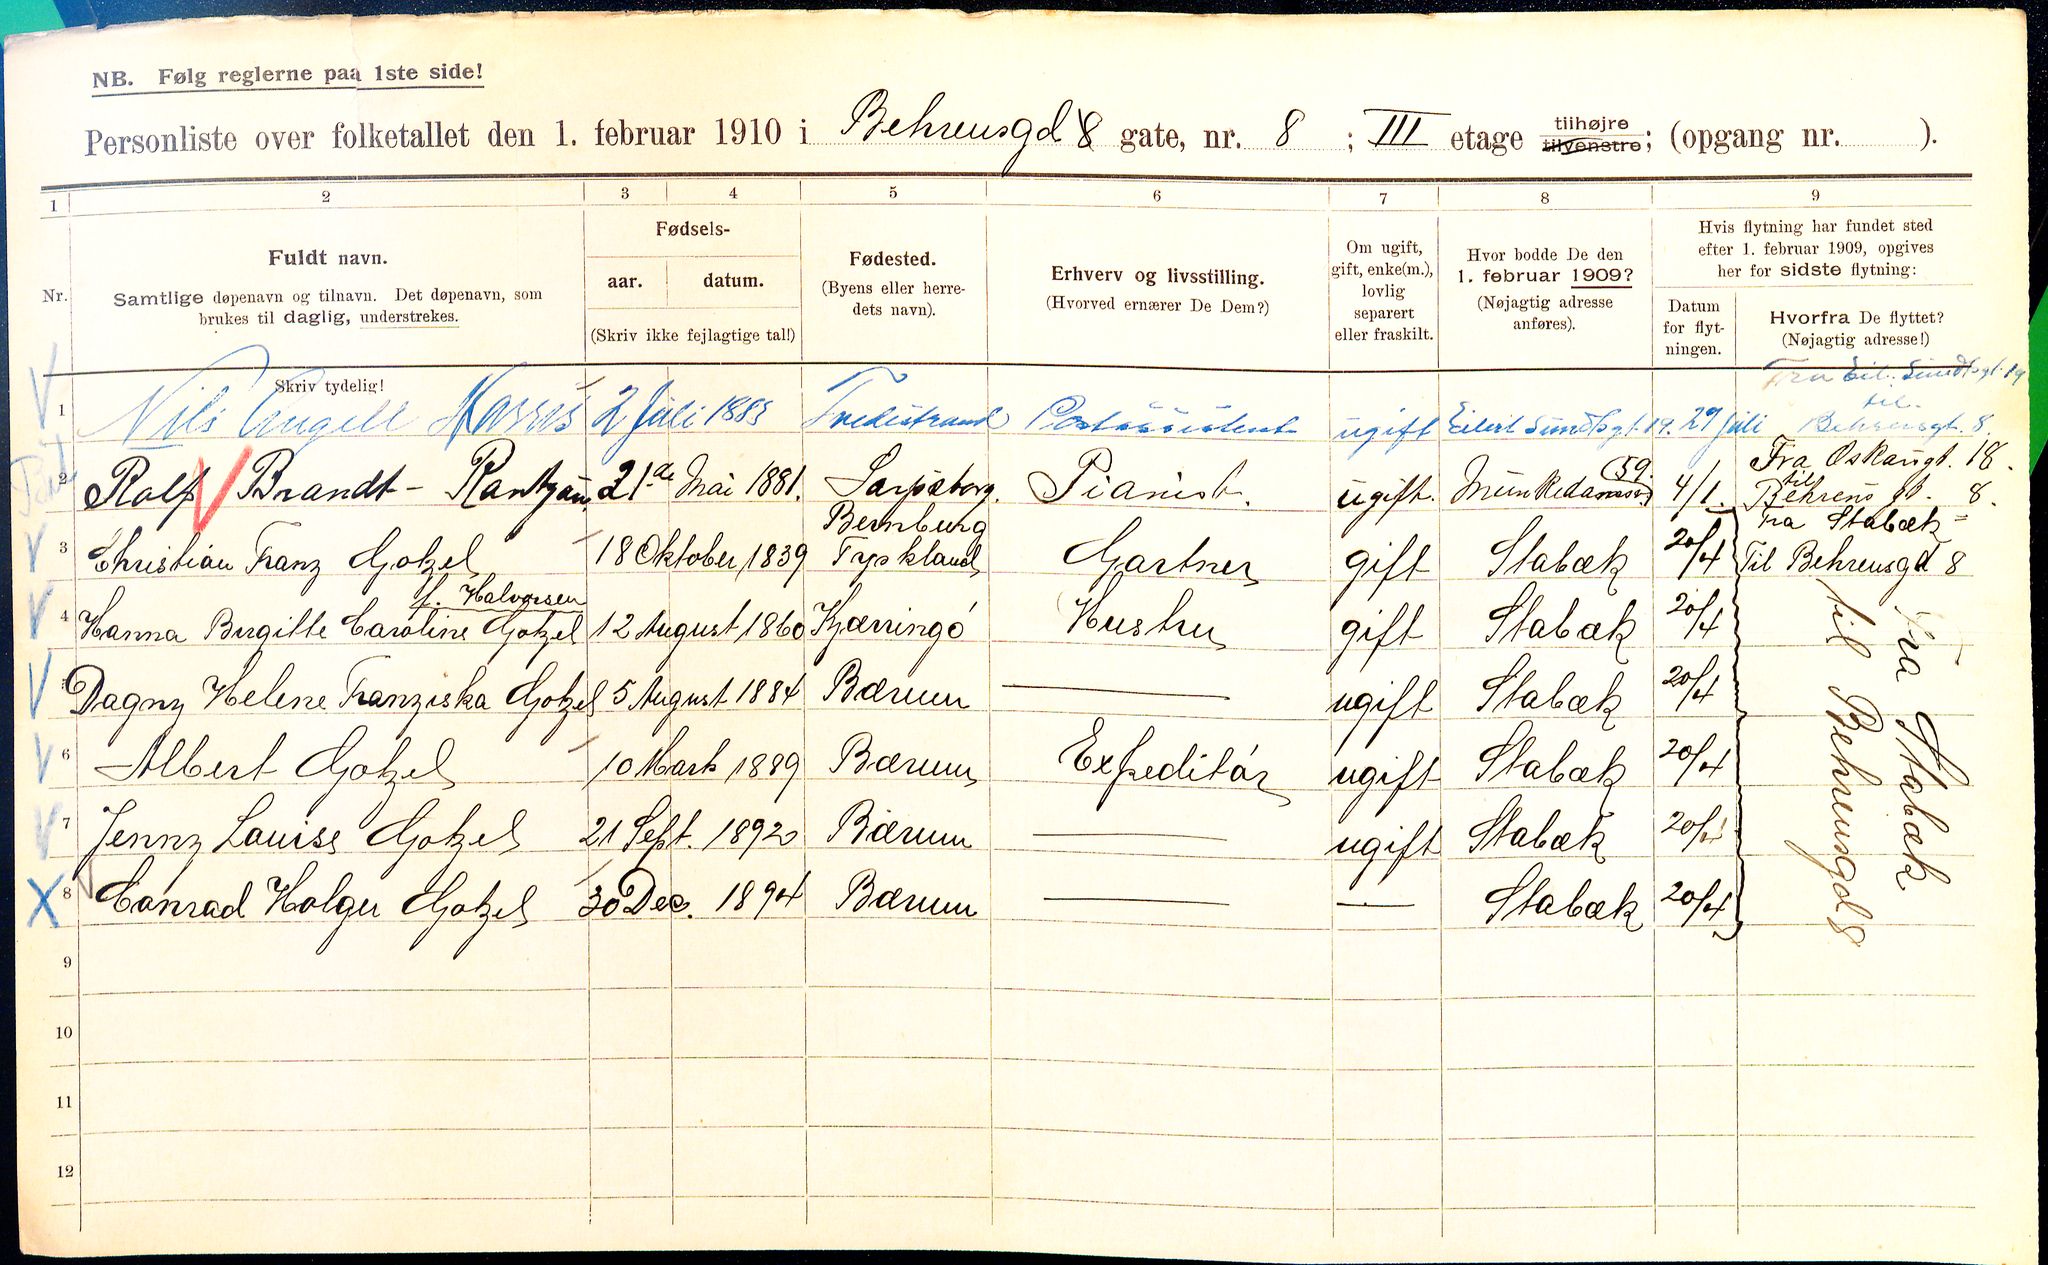 NB. Følg reglerne paa 1ste side!
Personliste over folketallet den 1. februar 1910 i Behrensgd 8 gate, nr. 8 ; III etage tilhøjre tilvenstre ; (opgang nr. ).
1 2 3 4 5 6 7 8 9
Nr.
Fuldt navn.
Samtlige døpenavn og tilnavn. Det døpenavn, som
brukes til daglig, understrekes.
Skriv tydelig!
Fødsels-
aar. datum.
(Skriv ikke fejlagtige tal!)
Fødested.
(Byens eller herre-
dets navn).
Erhverv og livsstilling.
(Hvorved ernærer De Dem?)
Om ugift,
gift, enke(m.),
lovlig
separert
eller fraskilt.
Hvor bodde De den
1. februar 1909?
(Nøjagtig adresse
anføres).
Hvis flytning har fundet sted
efter 1. februar 1909, opgives
her for sidste flytning:
Datum
for flyt-
ningen.
Hvorfra De flyttet?
(Nøjagtig adresse!)
Fra Eil. Sundtsgt. 19
til
1 Nils Angell 2 Juli 1885 Tvedestrand Postassistent ugift Eilert Sundtsgt. 19. 29 Juli Behrensgt. 8.
59. Fra Oskarsgt. 18.
til
2 Rolf Brandt-Rantzau, 21de Mai 1881. Sarpsborg. Pianist. ugift. 4/1. Behrens gt. 8.
Bernburg Fra Stabæk
3 Christian Franz Gotzel 18 Oktober 1839 Tyskland Gartner gift Stabæk 20/4 Til Behrensgd 8
f. Halvorsen
4 Hanna Birgitte Caroline Gotzel 12 August 1860 Kjærringö Hustru gift Stabæk 20/4
Dagny Helene Franziska Gotzel 5 August 1884 Bærum — ugift Stabæk 20/4
6 Albert Gotzel 10 Marts 1889 Bærum Expeditör ugift Stabæk 20/4
7 Jenny Louise Gotzel 21 Sept. 1892 Bærum — ugift Stabæk 20/4
8 Conrad Holger Gotzel 30 Dec. 1894 Bærum — — Stabæk 20/4
Fra Stabæk
til Behrensgd 8
9
10
11
12